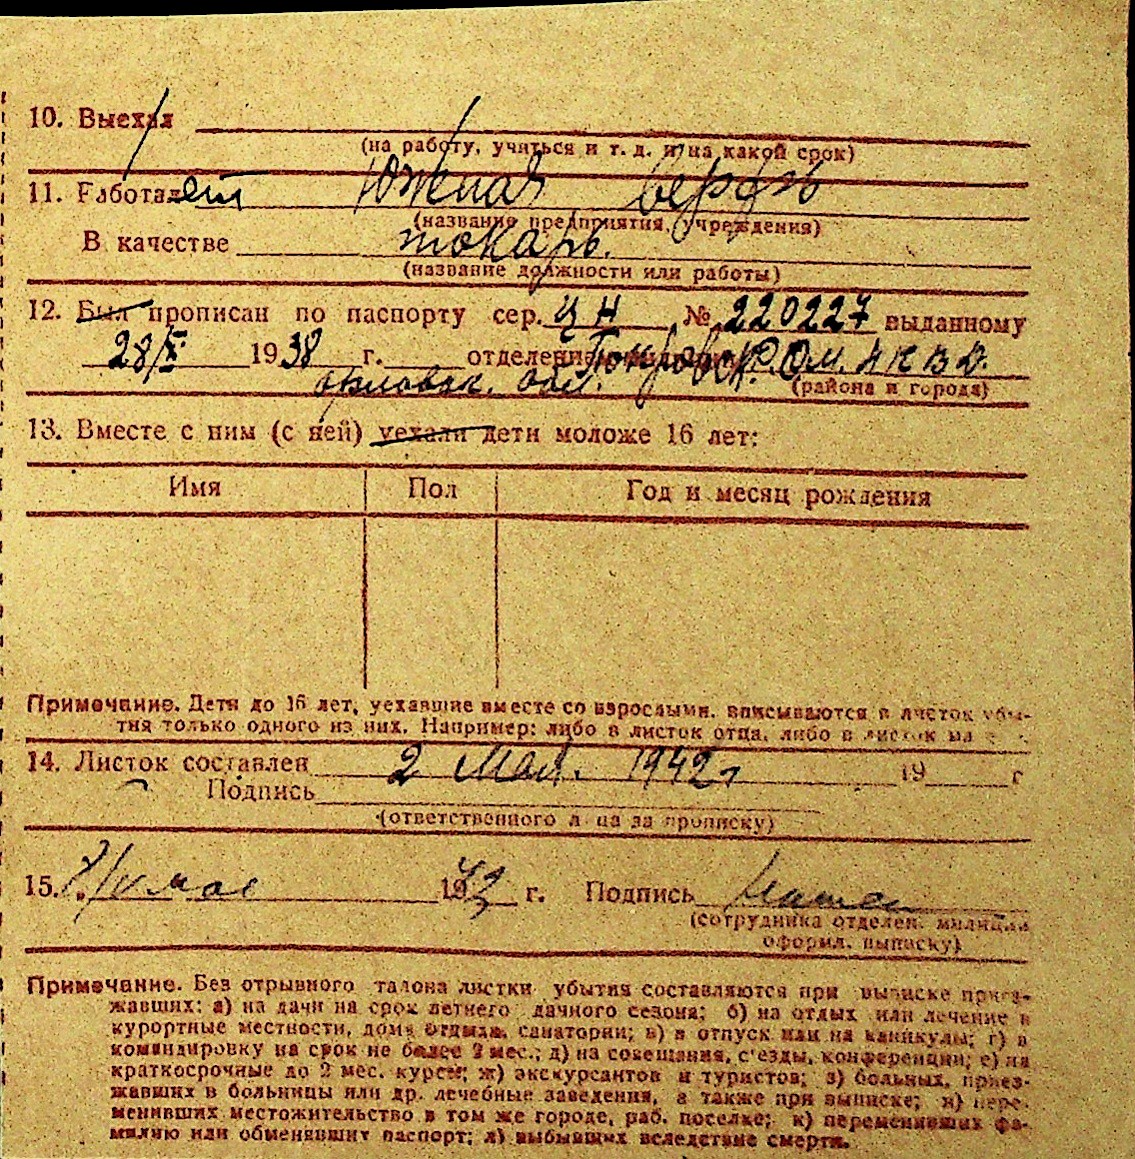 10. Выехал
(на работу, учиться и т. д. и на какой срок)
11. Работает Южная верфь
(название предприятия, учреждения)
В качестве токарь.
(название должности или работы)
12. Был прописан по паспорту сер. ЦН № 220227 выданному
28/X 1938 г. отделением Покровск. Р.О.М. НКВД.
орловск. обл. (района и города)
13. Вместе с ним (с ней) уехали дети моложе 16 лет:
Имя Пол Год и месяц рождения
Примечание. Дети до 16 лет, уехавшие вместе со взрослыми, вписываются в листок убы-
тия только одного из них. Например: либо в листок отца, либо в листок ма
14. Листок составлен 2 мая. 1942 г 19 г
Подпись
(ответственного лица за прописку)
15. мая 1942 г. Подпись
(сотрудника отделен. милиции
оформл. выписку)
Примечание. Без отрывного талона листки убытия составляются при выписке приез-
жавших: а) на дачи на срок летнего дачного сезона; б) на отдых или лечение в
курортные местности, дома отдыха, санатории; в) в отпуск или на каникулы; г) в
командировку на срок не более 2 мес.; д) на совещания, с'езды, конференции; е) на
краткосрочные до 2 мес. курсы; ж) экскурсантов и туристов; з) больных, приез-
жавших в больницы или др. лечебные заведения, а также при выписке; и) пере-
менивших местожительство в том же городе, раб. поселке; к) переменивших фа-
милию или обменявших паспорт; л) выбывших вследствие смерти.